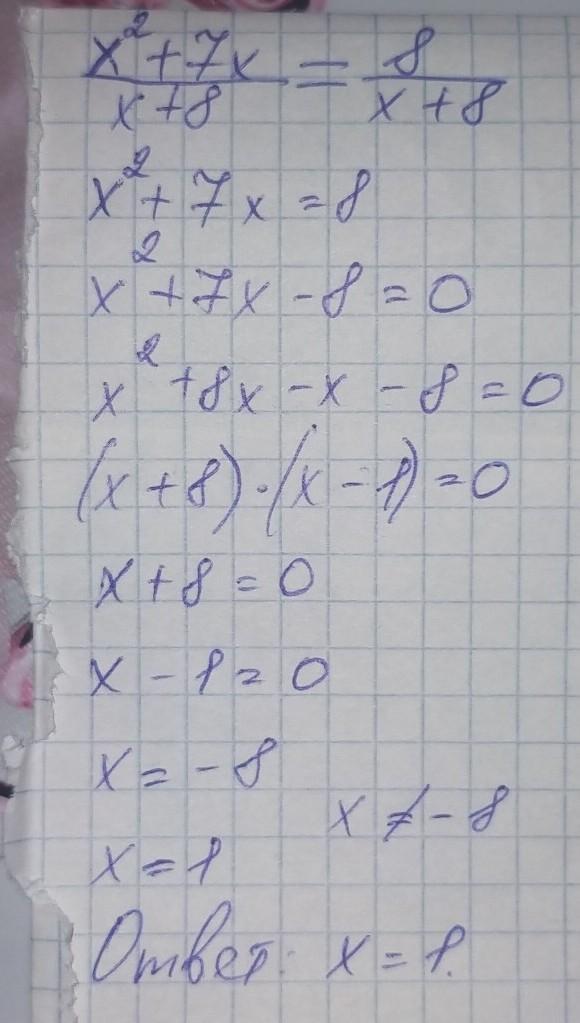 x² + 7x / x + 8 = 8 / x + 8
x² + 7x = 8
x² + 7x - 8 = 0
x² + 8x - x - 8 = 0
(x + 8) · (x - 1) = 0
x + 8 = 0
x - 1 = 0
x = - 8
x ≠ - 8
x = 1
Ответ: x = 1.